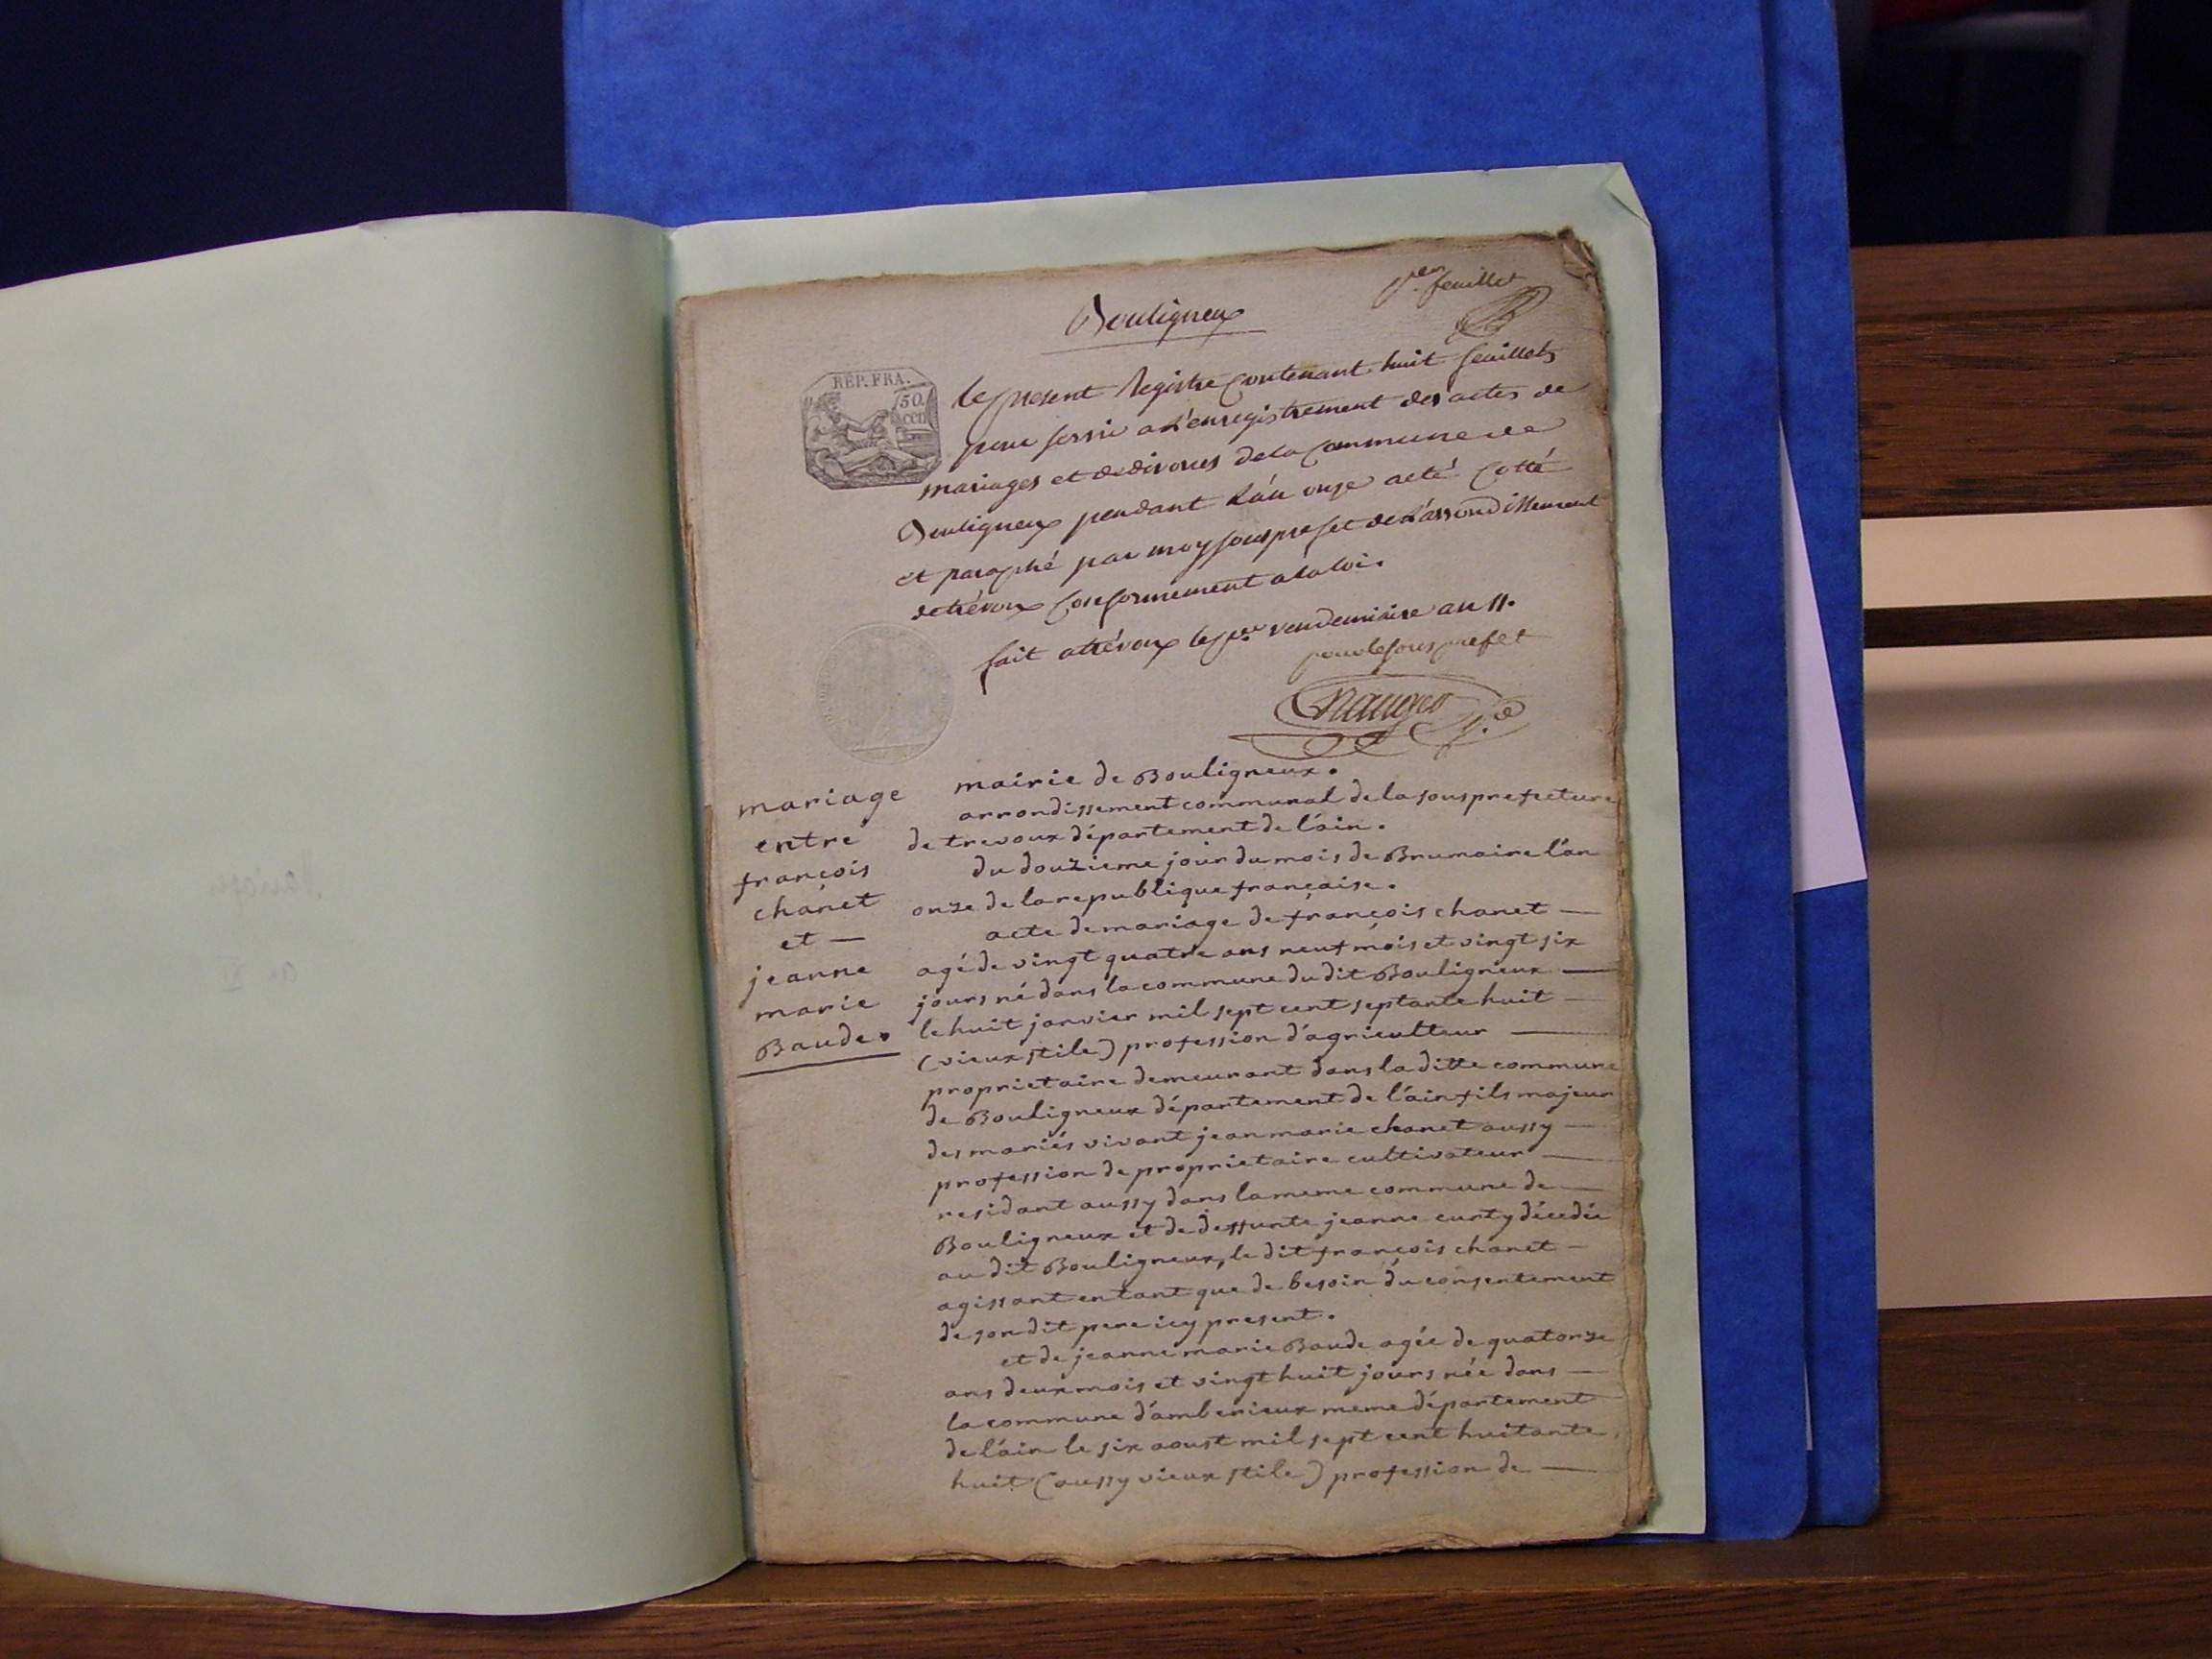 1.er feuillet
Bouligneux
REP. FRA.
50.
CEN
le present Registre Contenant huit feuillets
pour servir a l'enregistrement des actes de
mariages et de divorces de la Commune de
Bouligneux pendant l'an onze a été Cotté
et paraphé par moy sous prefet de l'arrondissement
de trévoux Conformement a la loi.
fait a trévoux le p.er vendemiaire an 11.
pour le sous prefet
mairie de Bouligneux.
arrondissement communal de la sous prefecture
de trevoux département de l'ain.
du douzieme jour du mois de Brumaire l'an
onze de la republique française.
mariage
entre
françois
chanet
et —
jeanne
marie
Baude.
acte de mariage de françois chanet —
agé de vingt quatre ans neuf mois et vingt six
jours né dans la commune du dit Bouligneux —
le huit janvier mil sept cent septante huit —
(vieux stile) profession d'agriculteur —
proprietaire demeurant dans la ditte commune
de Bouligneux département de l'ain fils majeur
des mariés vivant jean marie chanet aussy —
profession de proprietaire cultivateur —
residant aussy dans la meme commune de —
Bouligneux et de deffunte jeanne curty décedée
au dit Bouligneux, le dit françois chanet —
agissant en tant que de besoin du consentement
de son dit pere icy present.
et de jeanne marie Baude agée de quatorze
ans deux mois et vingt huit jours née dans —
la commune d'amberieux meme département
de l'ain le six aoust mil sept cent huitante
huit (aussy vieux stile) profession de —